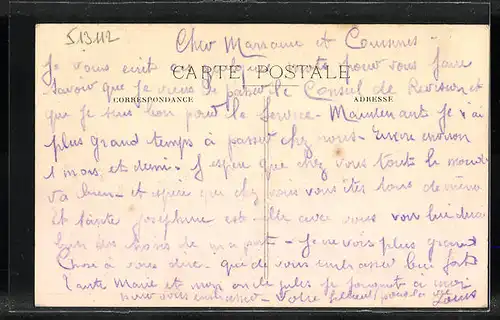 513112
Cher Marraine et Cousines
Je vous écrit quelques mots pour vous faire
CARTE POSTALE
savoir que je viens de passer le Conseil de Revision et
CORRESPONDANCE ADRESSE
que je suis bon pour le service - Maintenant je n'ai
plus grand temps à passer chez nous - Encore environ
1 mois et demi - J'espere que chez vous tout le monde
va bien - et espere que chez vous vous êtes tous de même
Et tante Joséphine est elle avec vous vous lui direz
bien des choses de ma part - Je ne vois plus grand
Chose à vous dire que de vous embrasser bien fort
Tante Marie et mon oncle Jules se joignent a moi
pour vous embrasser - Votre filleul pour la vie
Louis